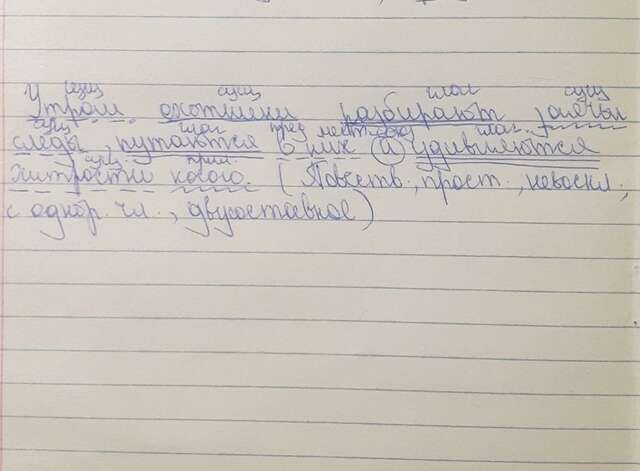 сущ сущ глаг сущ
Утром охотники разбирают заячьи
сущ глаг пред мест глаг.
следы, путаются в них и удивляются
сущ. прил.
хитростью косого. (Повеств., прост., невоскл.,
с однор. чл., двусоставное)